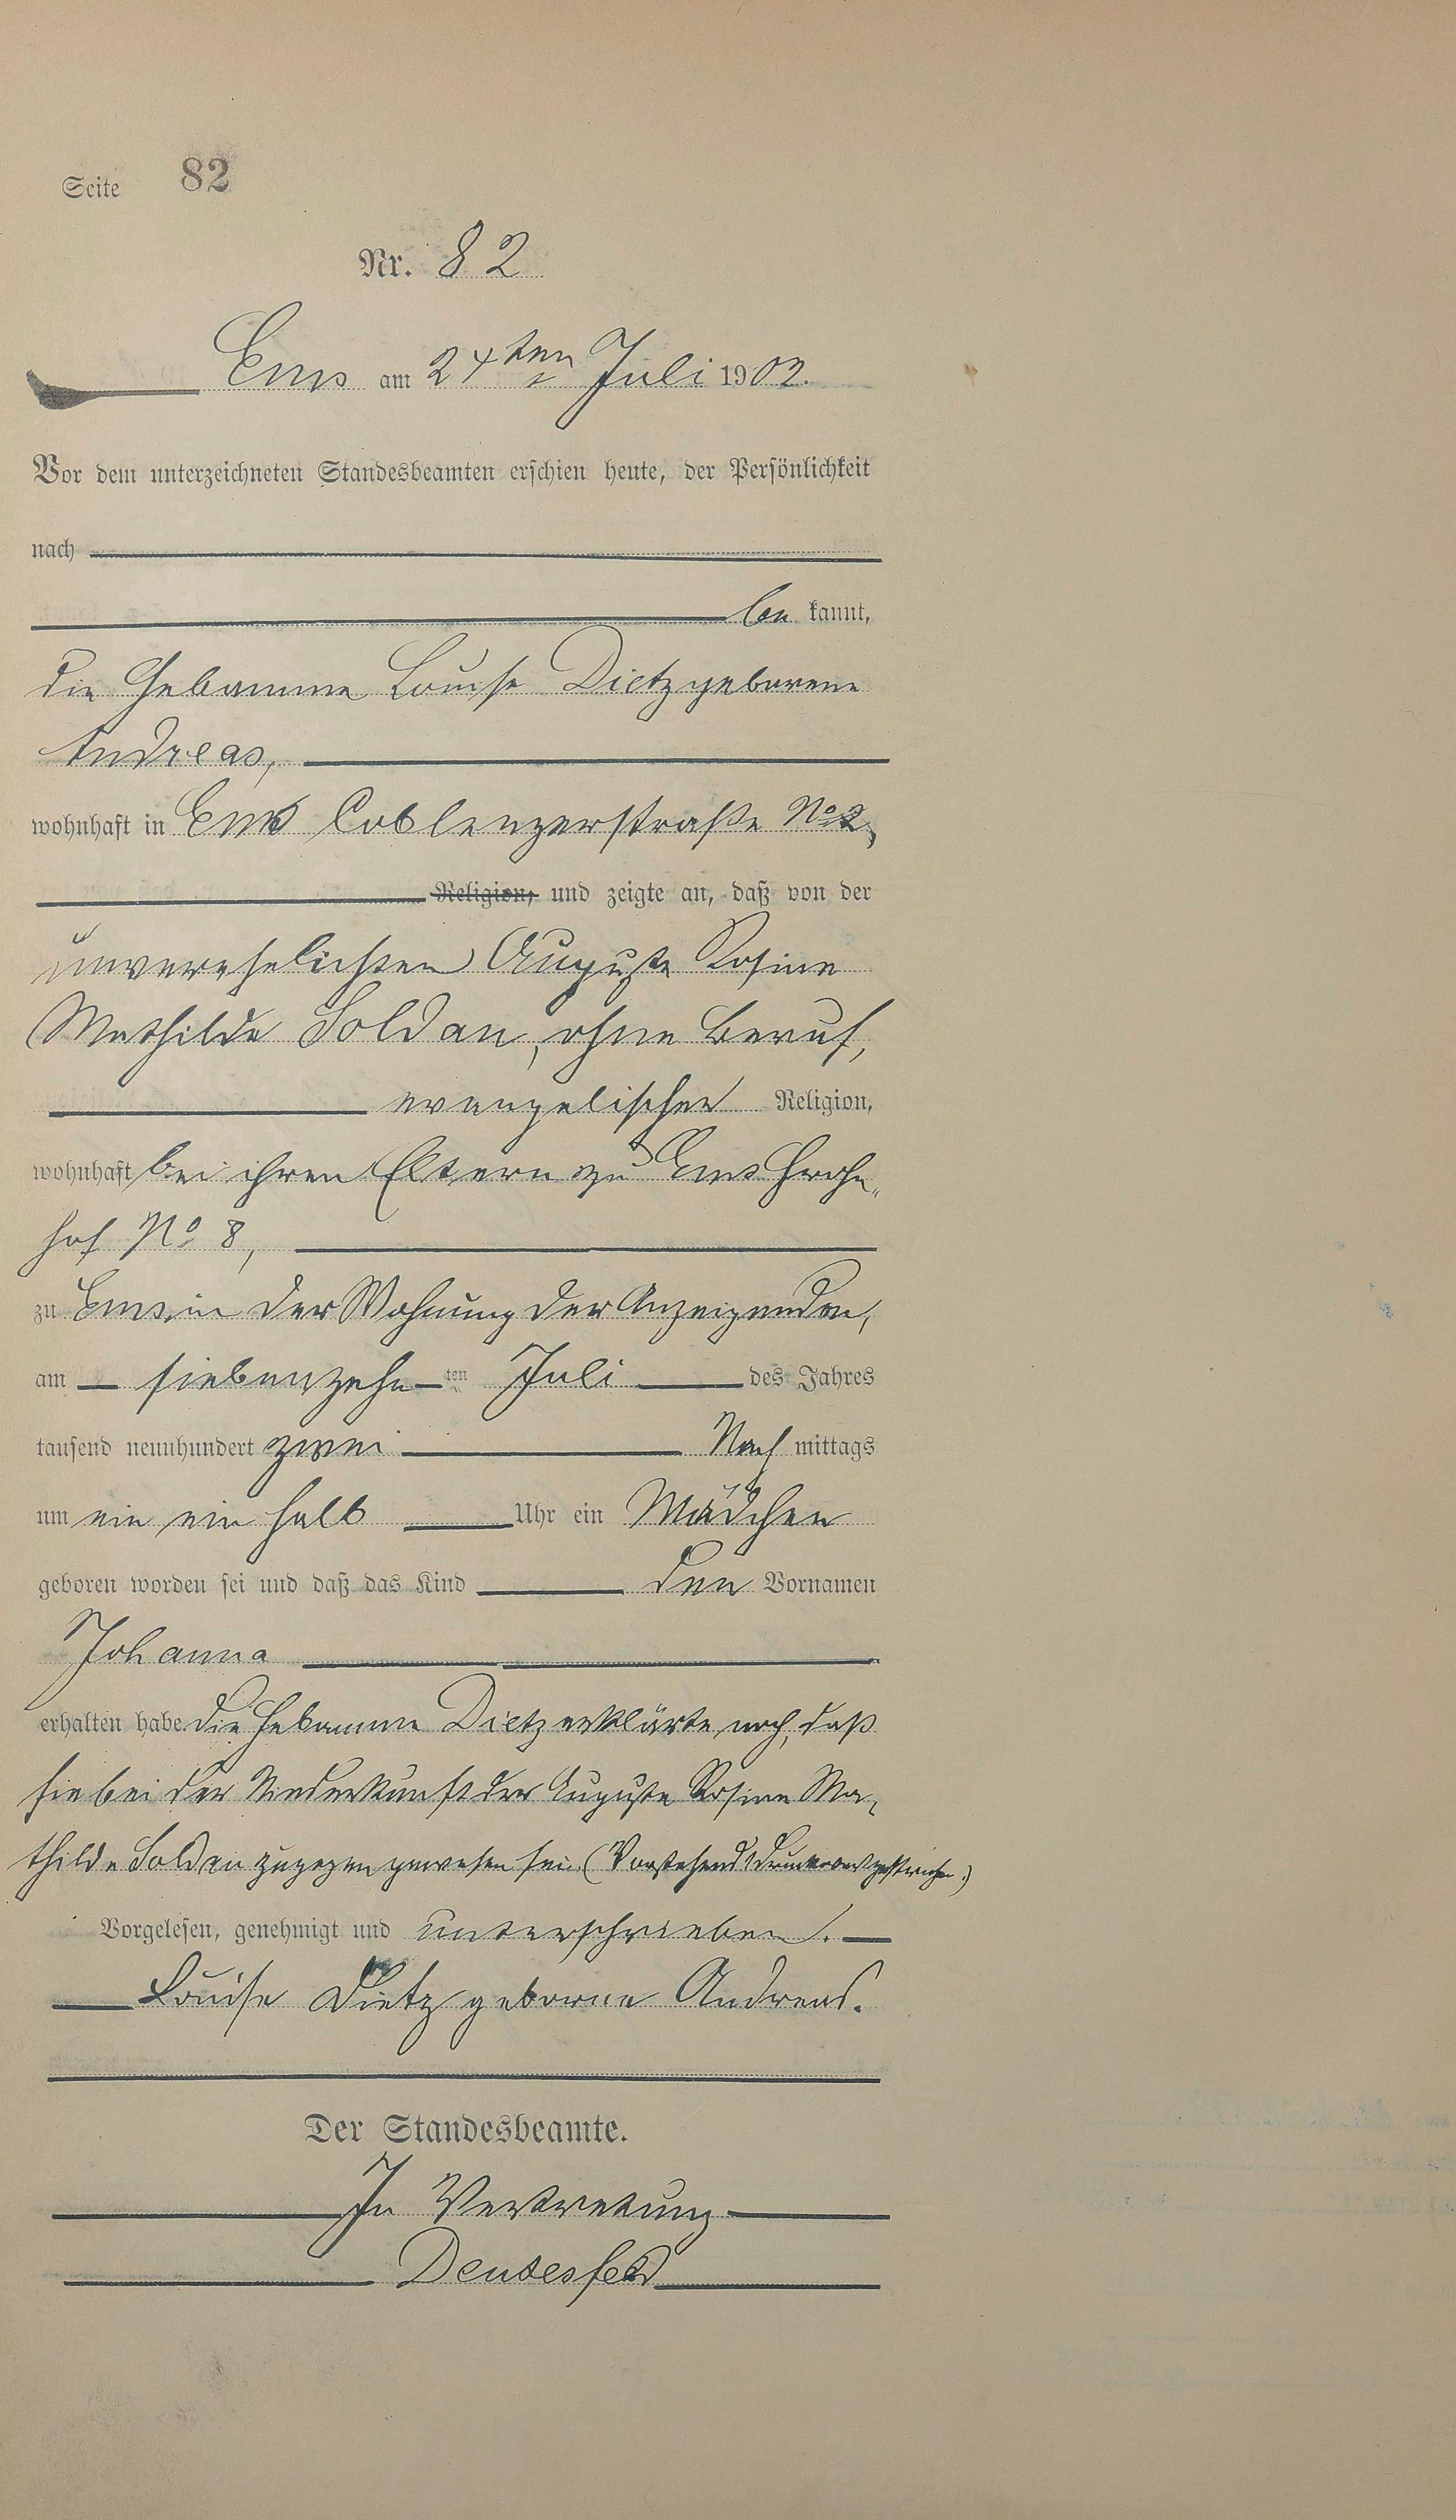 Seite 82
Nr. 82
Ems am 24ten Juli 1902.
Vor dem unterzeichneten Standesbeamten erschien heute, der Persönlichkeit
nach
be kannt,
die Hebamme Louise Dietz geborene
Andreas,
wohnhaft in Ems Coblenzerstraße No 2,
Religion, und zeigte an, daß von der
unverehelichten Auguste Rosine
Mathilde Soldan, ohne Beruf,
evangelischer Religion,
wohnhaft bei ihren Eltern zu Ems Frohn„
hof No 8,
zu Ems, in der Wohnung der Anzeigenden,
am siebenzehn ten Juli des Jahres
tausend neunhundert zwei Nach mittags
um ein ein halb Uhr ein Mädchen
geboren worden sei und daß das Kind den Vornamen
Johanna
erhalten habe die Hebamme Dietz erklärte noch, daß
sie bei der Niederkunft der Auguste Rosine Ma„
thilde Soldan zugegen gewesen sei. (Vorstehend 1 Druckwort gestrichen.)
Vorgelesen, genehmigt und unterschrieben.
Louise Dietz geborne Andreas.
Der Standesbeamte.
In Vertretung
Deusesfeld